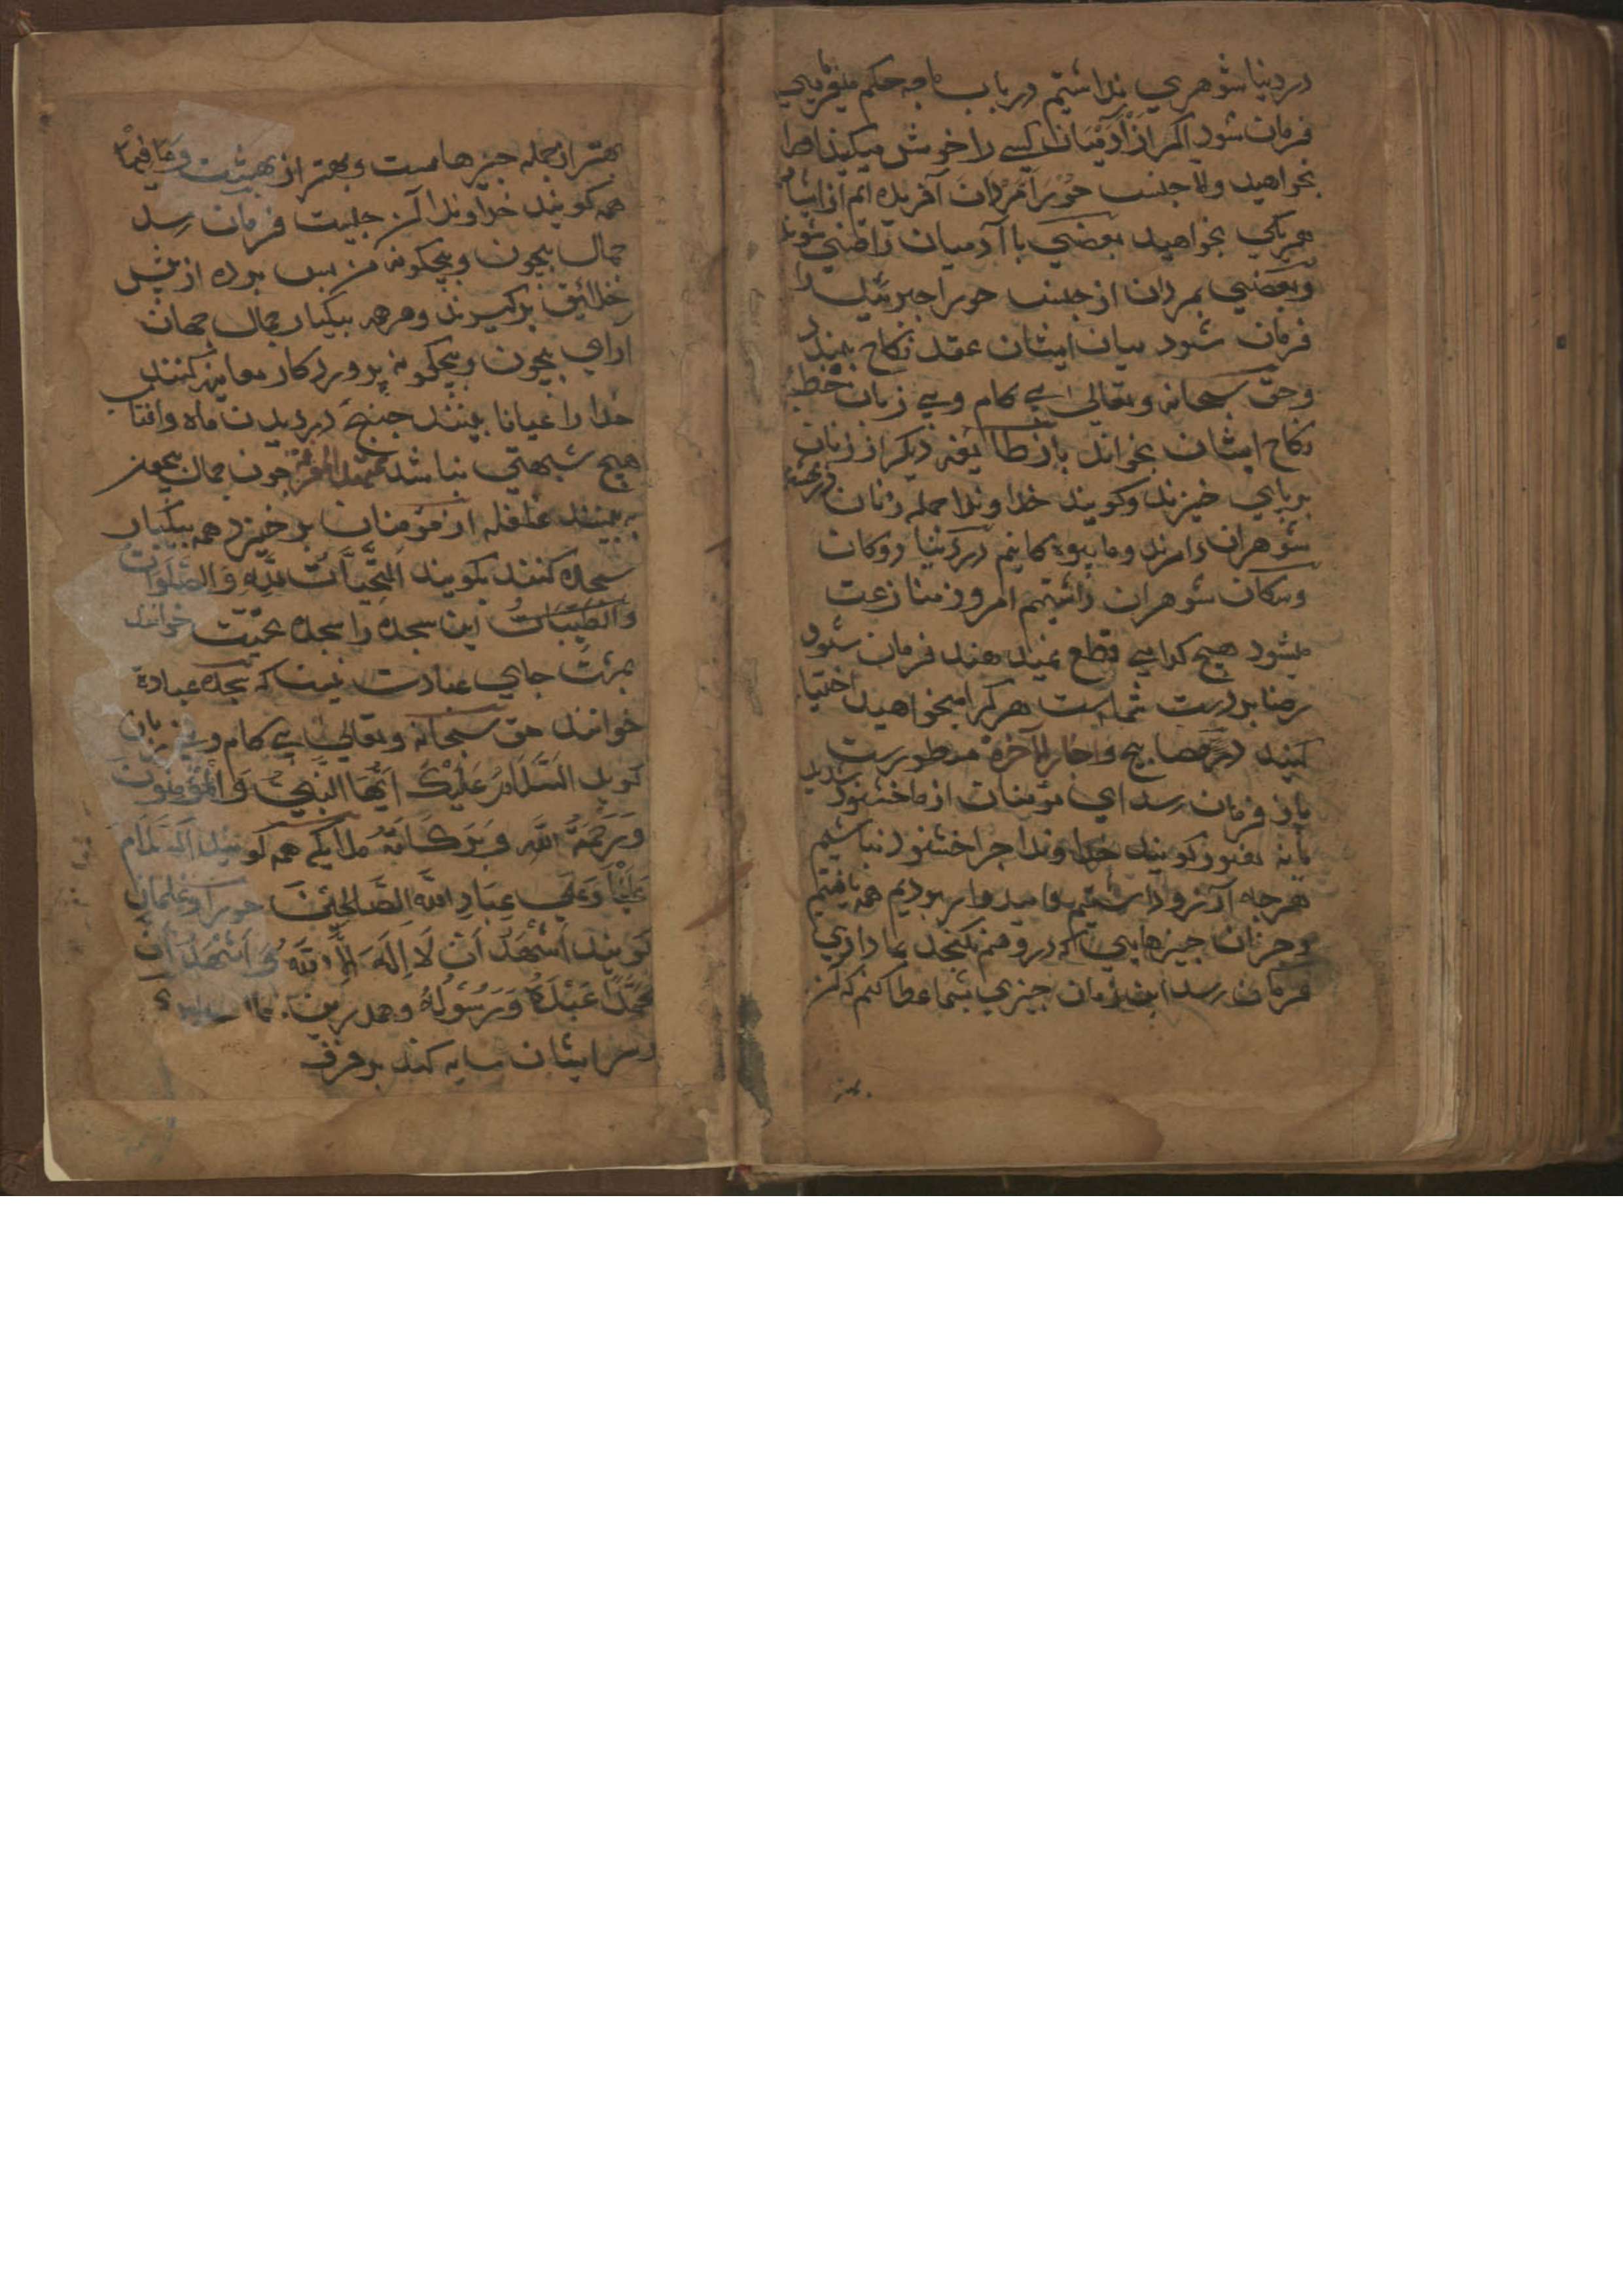 در دنیا شوهری نداشتیم در باب ما چه حکم میفرمایی
فرمان شود اکر از آدمیان کسی را خوش میکنید اورا
بخواهید ولا جنس حورا مردان آفریده ایم از ایشان
هر یکی بخواهید بعضی با آدمیان راضی شوند
وبعضی بمردان از جنس حورا جبرئیل را
فرمان شود میان ایشان عقد نکاح بند
وحق سبحانه وتعالی بی کام وبی زبان خطبه
نکاح ایشان بخواند باز طایفه دیکر از زنان
بر پای خیزند وکویند خداوندا جمله زنان
شوهران دارند وما بیوه کانیم در دنیا دوکان
وسکان شوهران داشتیم امروز منازعت
میشود هیچ کدامی قطع نمیدهند فرمان شود
رضا بر دست شماست هر کرا میخواهید اختیار
کنید در مصابیح واخبار الآخرة مسطورست
باز فرمان رسد ای مؤمنان از ما خشنود شدید
یا نه کویند خداوندا چرا خشنود نباشیم
هرچه آرزو داشتیم وامیدوار بودیم همه یافتیم
وجزان چیزهایی که در وهم نکنجد بما دادی
فرمان رسد این زمان چیزی بشما عطا کنم که آن
بهتر
بهتر از جمله چیزهاست وبهتر از بهشت وما فیها
همه کویند خداوندا آن چیست فرمان رسد
جمال بیچون وبیچکونه من پس پرده از پیش
خلائق بر کیرند وهمه بیکبار جمال جهان
ارای بیچون وبیچکونه پروردکار معاینه کنند
خدا را عیانا بینند چنانچه در دیدن ماه وافتاب
هیچ شبهتی نباشد چون جمال بیچون
ببینند غلغله از مؤمنان بر خیزد همه بیکبار
سجده کنند بکویند اَلتَّحِيَّاتُ لِلّٰهِ وَالصَّلَوَاتُ
وَالطَّيِّبَاتُ این سجده را سجده تحیت خوانند
بهشت جای عبادت نیست که سجده عبادة
خوانند حق سبحانه وتعالی بی کام وبی زبان
کوید اَلسَّلَامُ عَلَيْكَ اَيُّهَا النَّبِيُّ وَالْمُؤْمِنُونَ
وَرَحْمَةُ اللّٰهِ وَبَرَكَاتُهُ ملایکه همه کویند اَلسَّلَامُ
عَلَيْنَا وَعَلَى عِبَادِ اللّٰهِ الصَّالِحِيْنَ حوران وغلمان
کویند اَشْهَدُ اَنْ لَا اِلٰهَ اِلَّا اللّٰهُ وَاَشْهَدُ اَنَّ
مُحَمَّدًا عَبْدُهُ وَرَسُوْلُهُ وهمدرین
بر سر ایشان سایه کند بر فرق